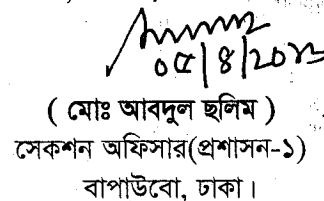 ০৫/৪/২০১৯
( মোঃ আবদুল ছলিম )
সেকশন অফিসার(প্রশাসন-১)
বাপাউবো, ঢাকা।